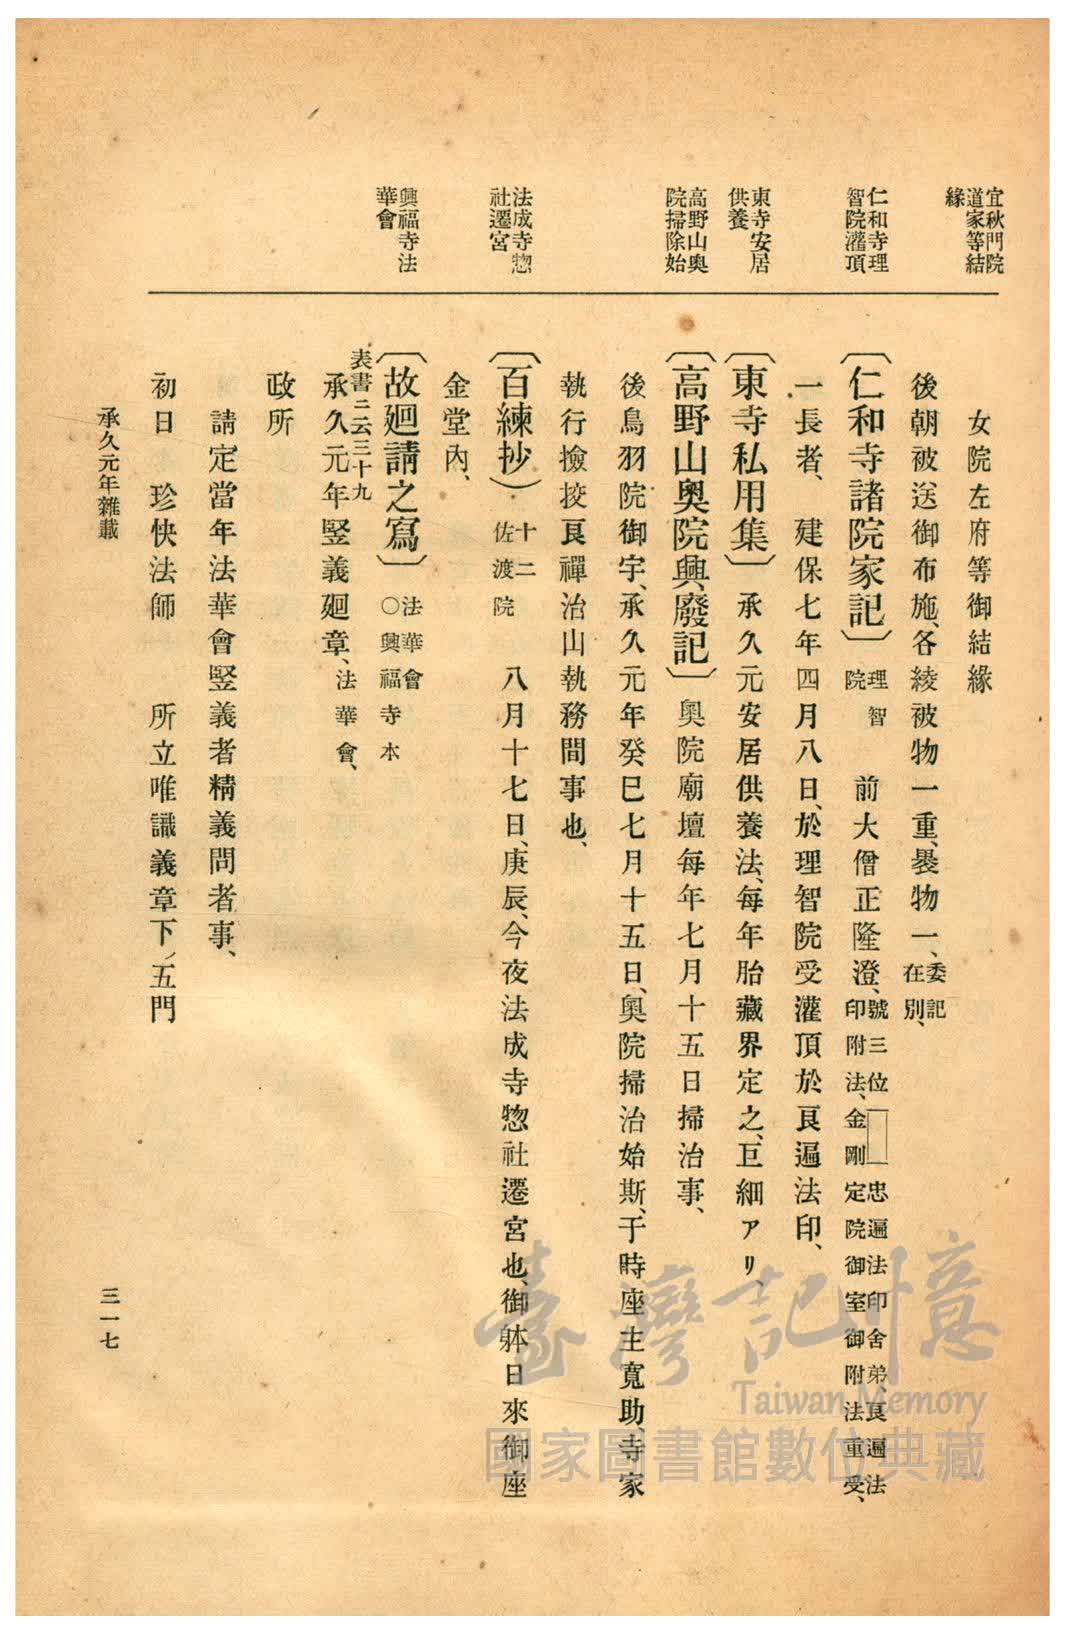 宜秋門院
道家等結
緣
仁和寺理
智院灌頂
東寺安居
供養
高野山奧
院掃除始
法成寺惣
社遷宮
興福寺法
華會
女院左府等御結緣
後朝被送御布施、各綾被物一重、裹物一、委記在別、
〔仁和寺諸院家記〕理智院 前大僧正隆澄、號三位 忠遍法印舍弟、良遍法印附法、金剛定院御室御附法重受、
一長者、 建保七年四月八日、於理智院受灌頂於良遍法印、
〔東寺私用集〕承久元安居供養法、每年胎藏界定之、巨細アリ、
〔高野山奧院興廢記〕奧院廟壇每年七月十五日掃治事、
後鳥羽院御宇、承久元年癸巳七月十五日、奧院掃治始斯、于時座主寬助、寺家
執行撿挍良禪治山執務間事也、
〔百練抄〕十二佐渡院 八月十七日、庚辰、今夜法成寺惣社遷宮也、御躰日來御座
金堂內、
〔故廻請之寫〕法華會○興福寺本
表書ニ云三十九
承久元年竪義廻章、法華會、
政所
請定當年法華會竪義者精義問者事、
初日 珍快法師 所立唯識義章下ノ五門
承久元年雜載
三一七
臺灣記憶
Taiwan Memory
國家圖書館數位典藏